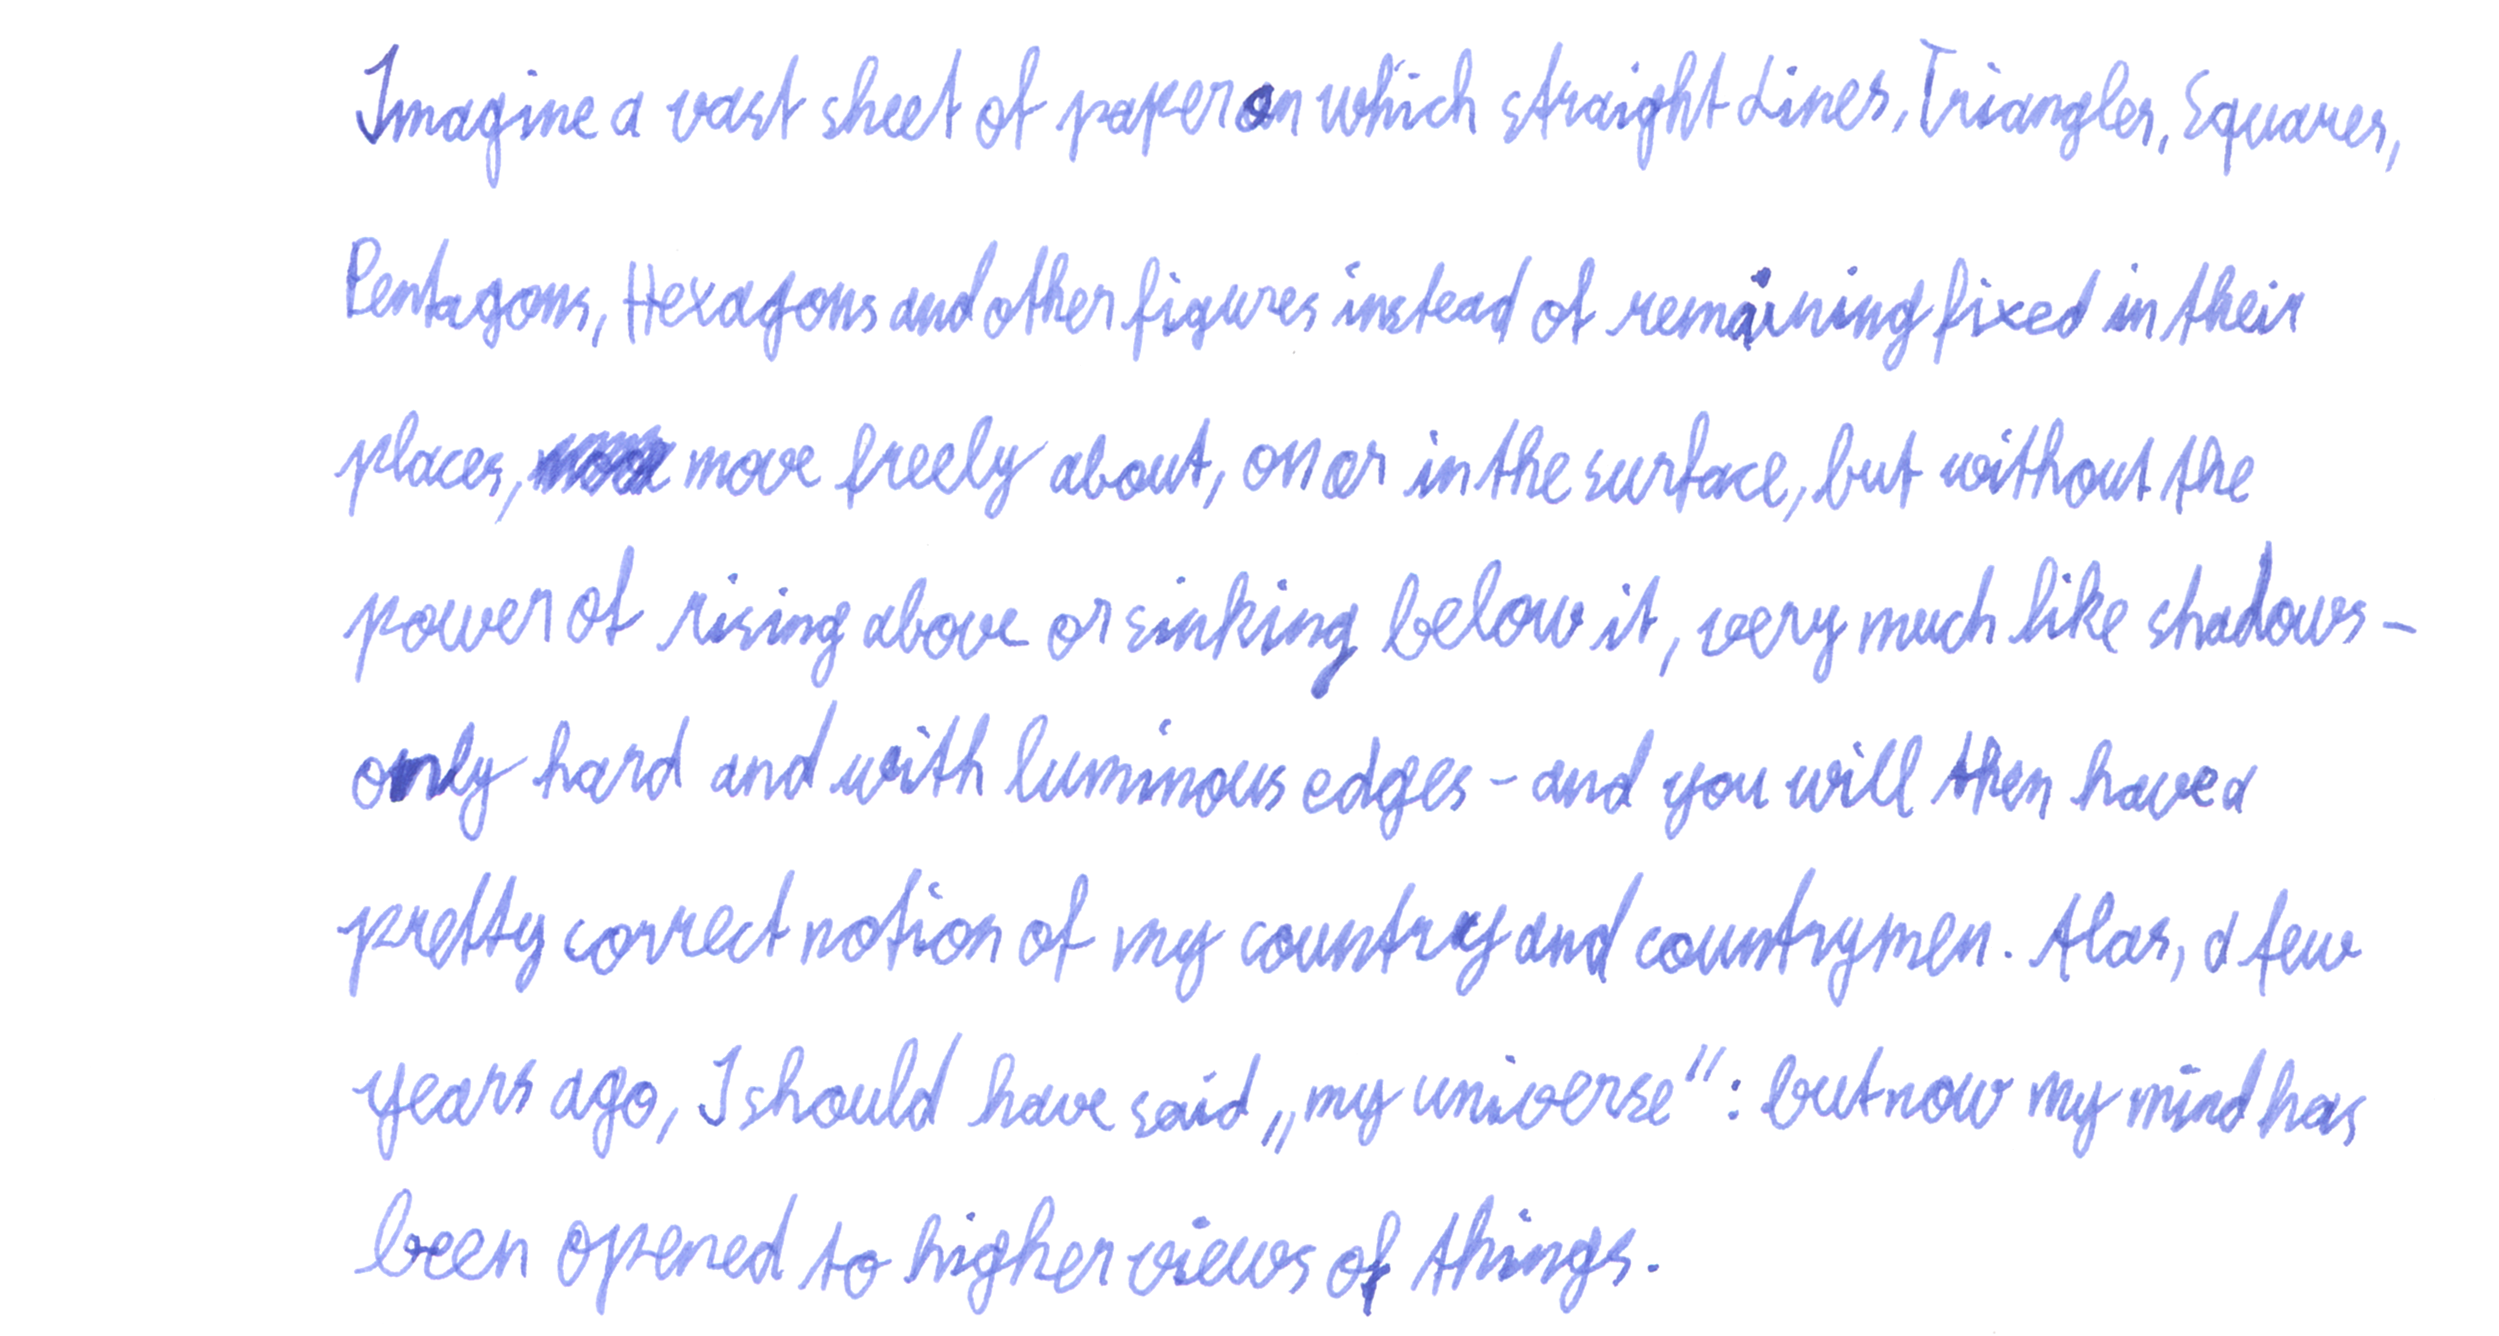 Imagine a vast sheet of paper on which straight Lines, Triangles, Squares,
Pentagons, Hexagons and other figures instead of remaining fixed in their
places, move freely about, on or in the surface, but without the
power of rising above or sinking below it, very much like shadows -
only hard and with luminous edges - and you will then have a
pretty correct notion of my country and countrymen. Alas, a few
years ago, I should have said „my universe“: but now my mind has
been opened to higher views of things.